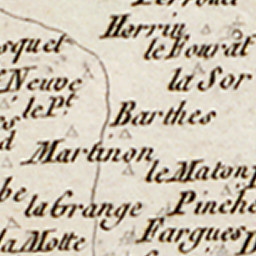 Herrin
le Fourat
squet
la Sor
Neuve
le Pt
Barthes
Martinon
le Maton
be
la Grange
Pinche
la Motte
Fargues